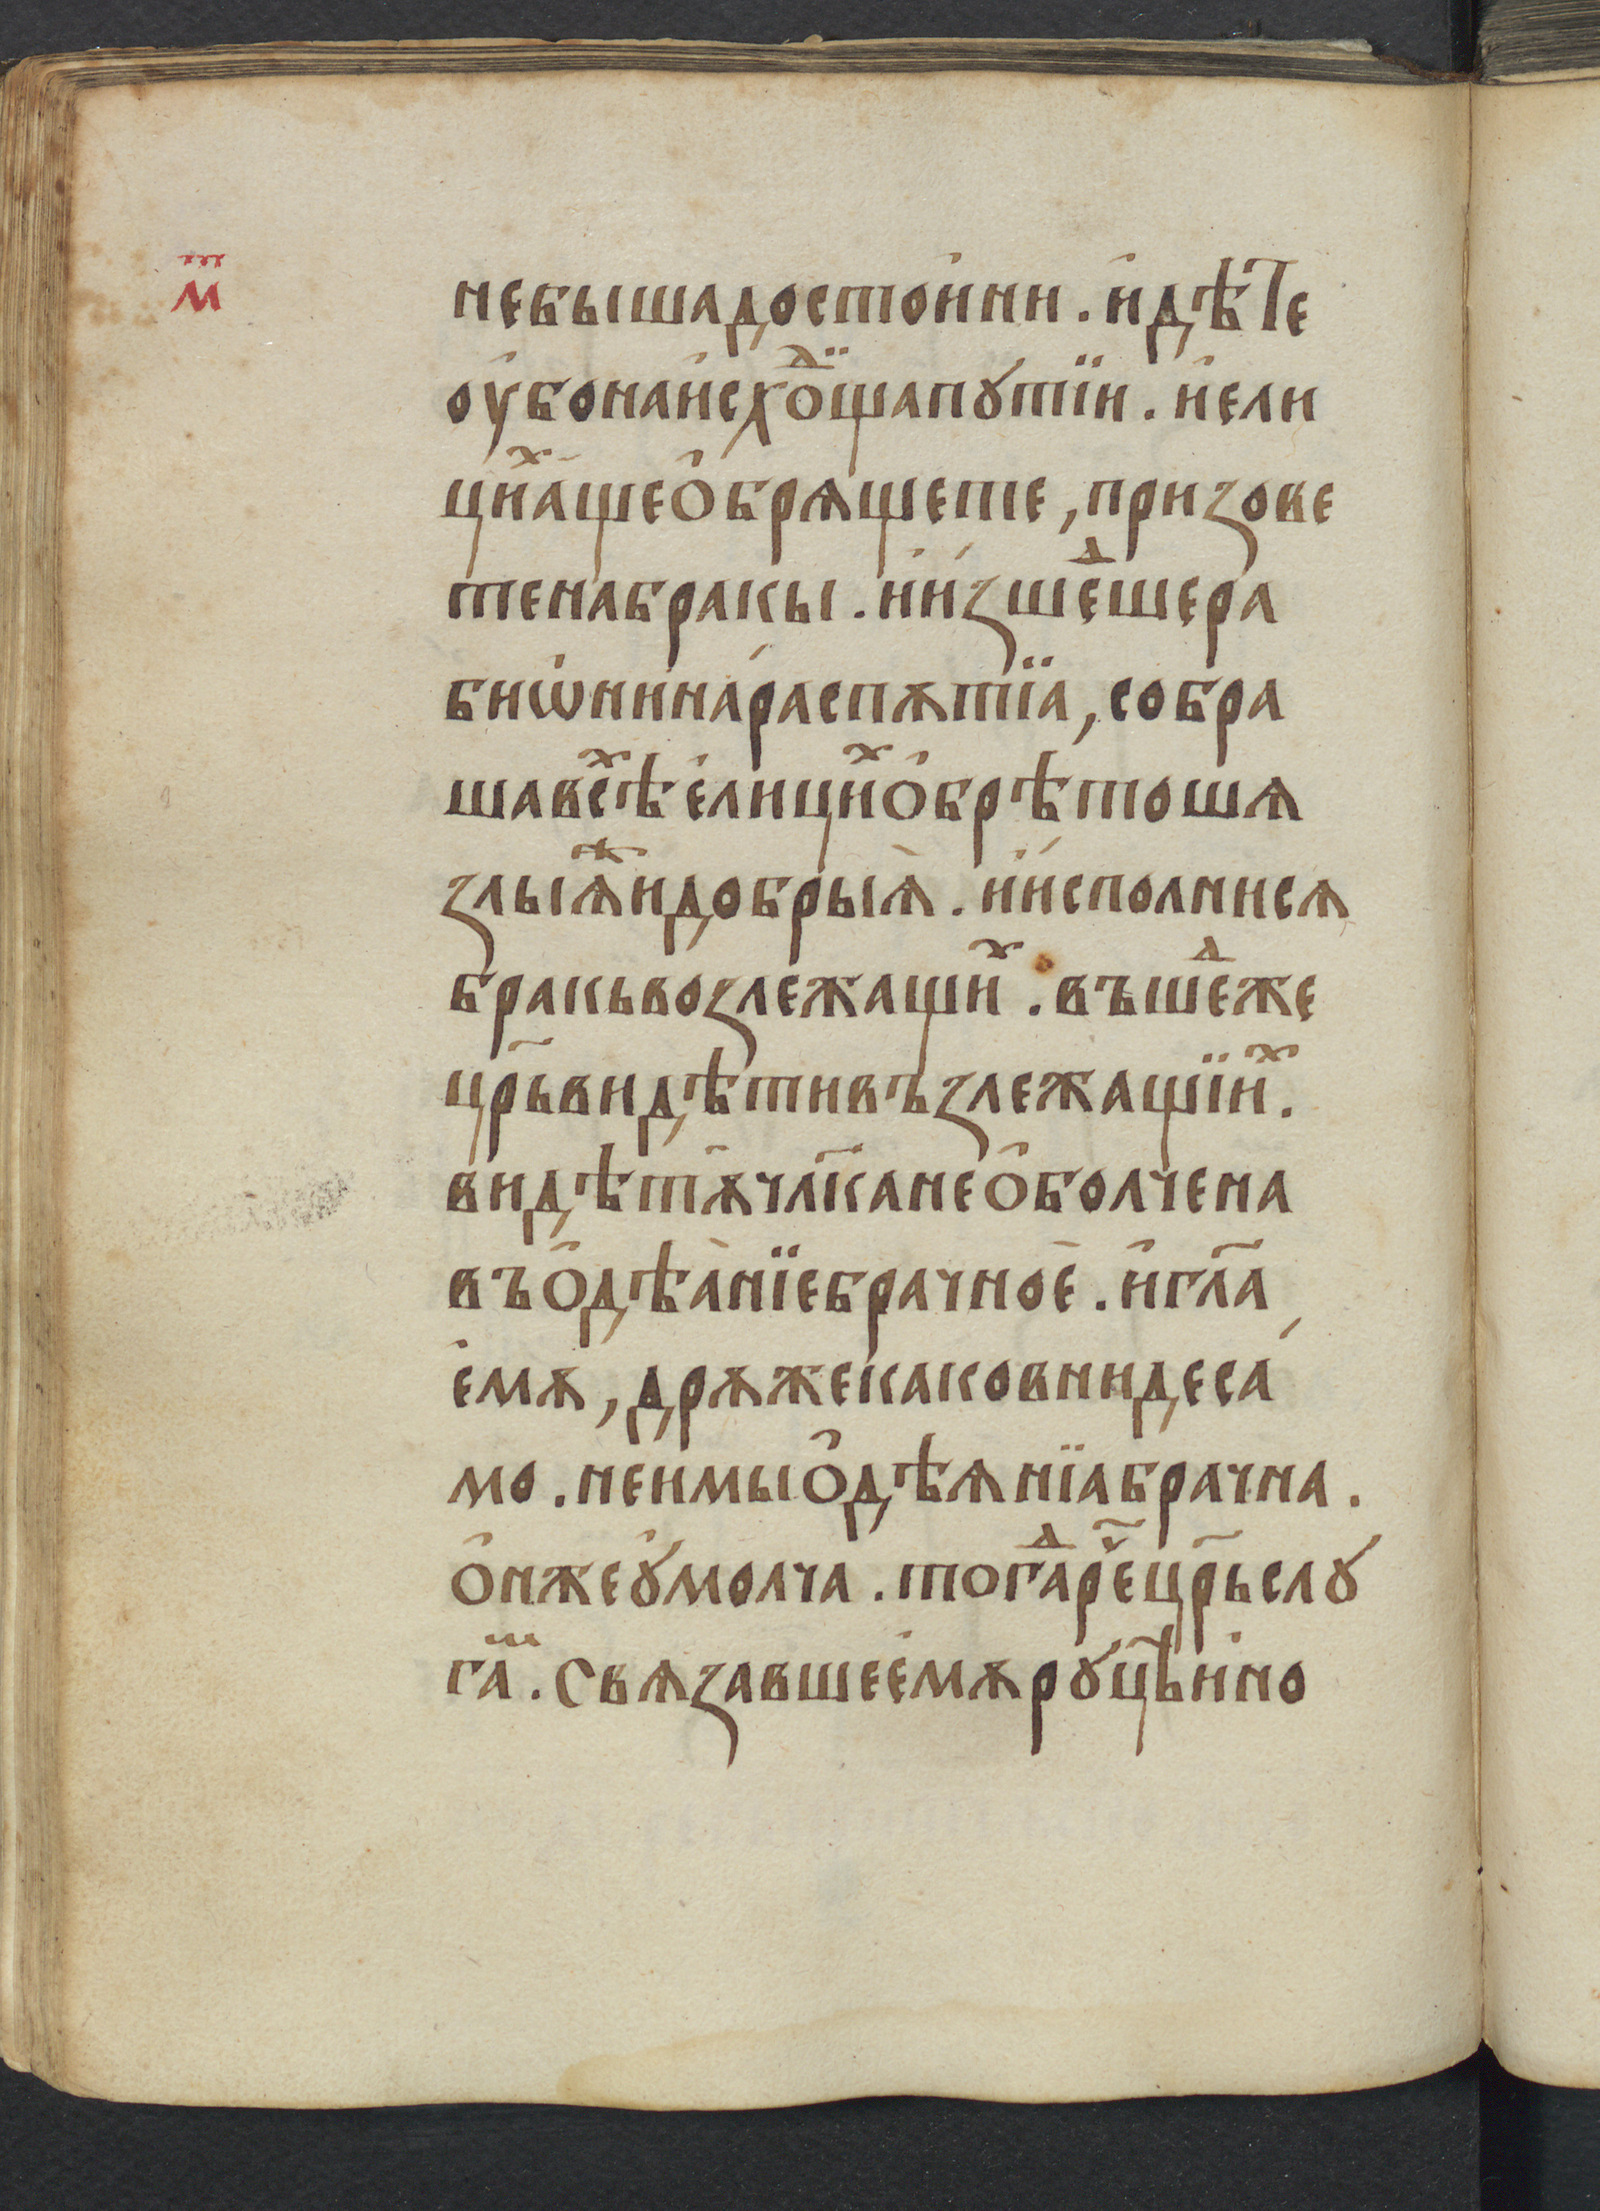 м҃
небышадостоини . идѣте
оубонаисхо́дⷤща пꙋтїи . иели
циⷯащеобрѧщете , призове
тенабракы . иизшеⷣшера
биѡнинараспѫтїа , собра
шавсⷯѣелициⷯобрѣтошѧ
злыѧⷤидобрыѧ . иисполнисѧ
бракьвозлежащиⷯ . въшеⷣже
цр҃ьвидѣтивъзлежащїиⷯ .
видѣтѫчл҃канеоболчена
въодѣанїебрачное . игл҃а
емѫ , дрѫжекаковнидеса
мо . неимыодѣѧнїабрачна .
онжеꙋмолча . тогⷣаре҃цр҃ьслꙋ
гаⷨ . свѧзавшеемѫрꙋцѣино